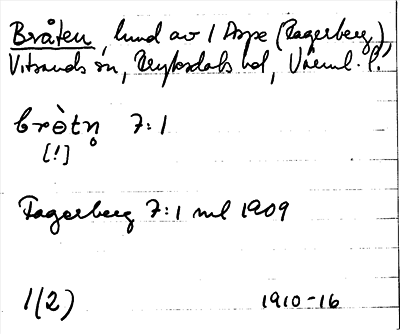 Bråten, hmd av 1 Aspe (Fagerberg),
Vitsands sn, Nyskoga hd, Värml. l.
brɵ̀tn̥ 7:1
[!]
Fagerberg 7:1 ml 1909
1(2) 1910-16